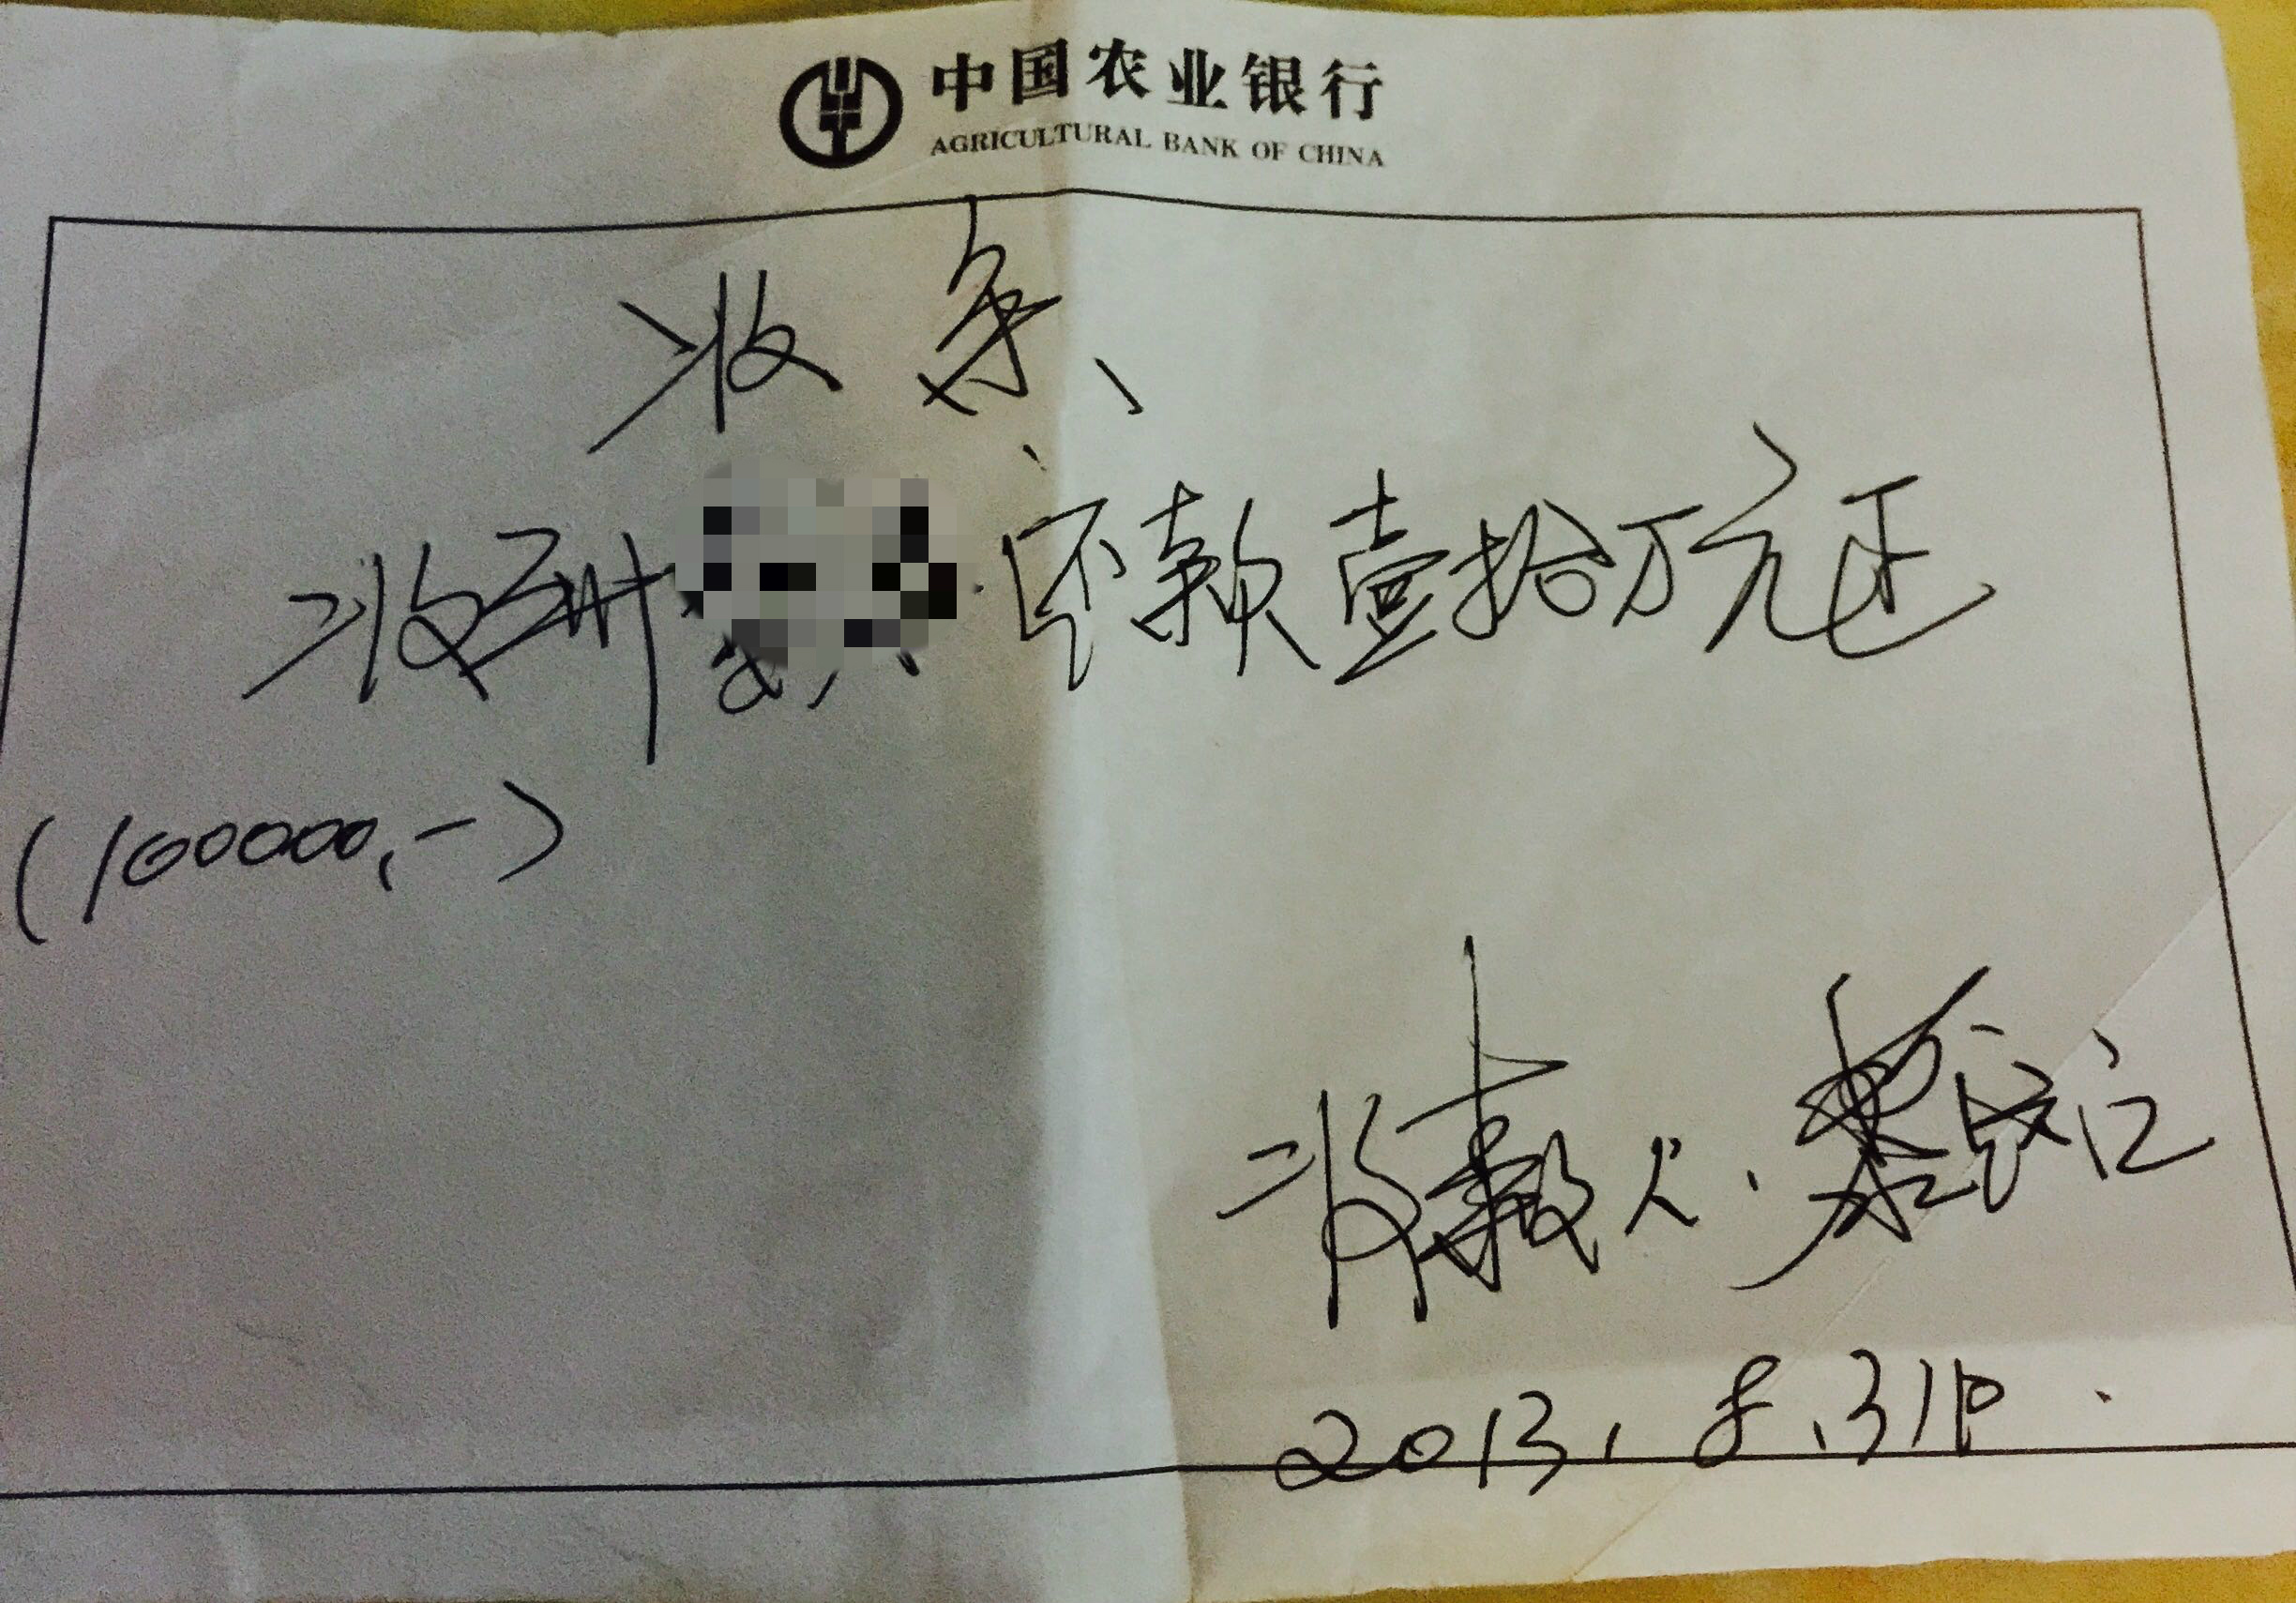 中国农业银行
AGRICULTURAL BANK OF CHINA
收条
收到 还款壹拾万元正
(100000,-)
收款人.
2013.8.31日.